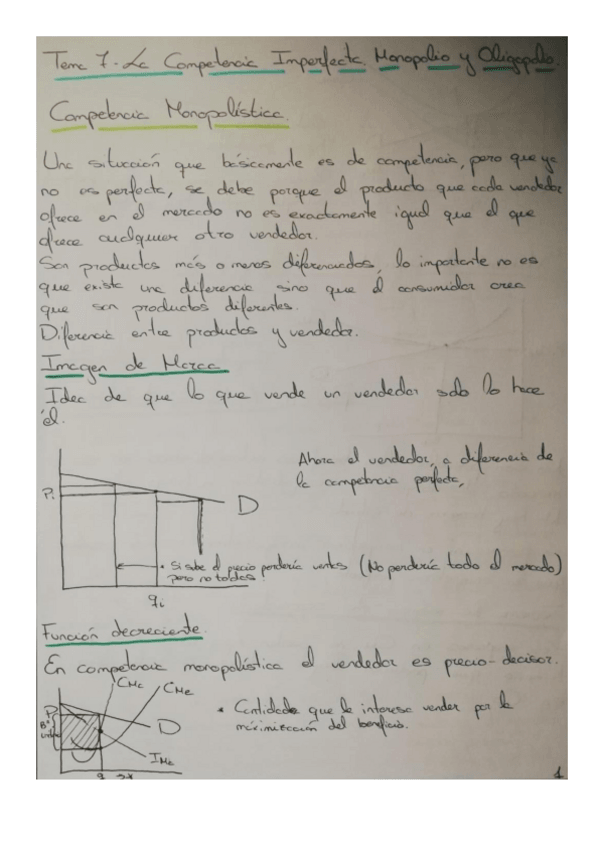 Tema 7.- La Competencia Imperfecta. Monopolio y Oligopolio.
Competencia Monopolística.
Una situación que básicamente es de competencia, pero que ya
no es perfecta, se debe porque el producto que cada vendedor
ofrece en el mercado no es exactamente igual que el que
ofrece cualquier otro vendedor.
Son productos más o menos diferenciados, lo importante no es
que exista una diferencia sino que el consumidor crea
que son productos diferentes.
Diferencia entre productos y vendedor.
Imagen de Marca
Idea de que lo que vende un vendedor solo lo hace
él.
Ahora el vendedor, a diferencia de
la competencia perfecta,
Pi
D
• Si sube el precio perdería ventas (No perdería todo el mercado)
pero no todas
qi
Función decreciente.
En competencia monopolística el vendedor es precio-decisor.
CMa
CMe
P
Bº
D
IMa
q
• Cantidad que le interesa vender por la
maximización del beneficio.
1